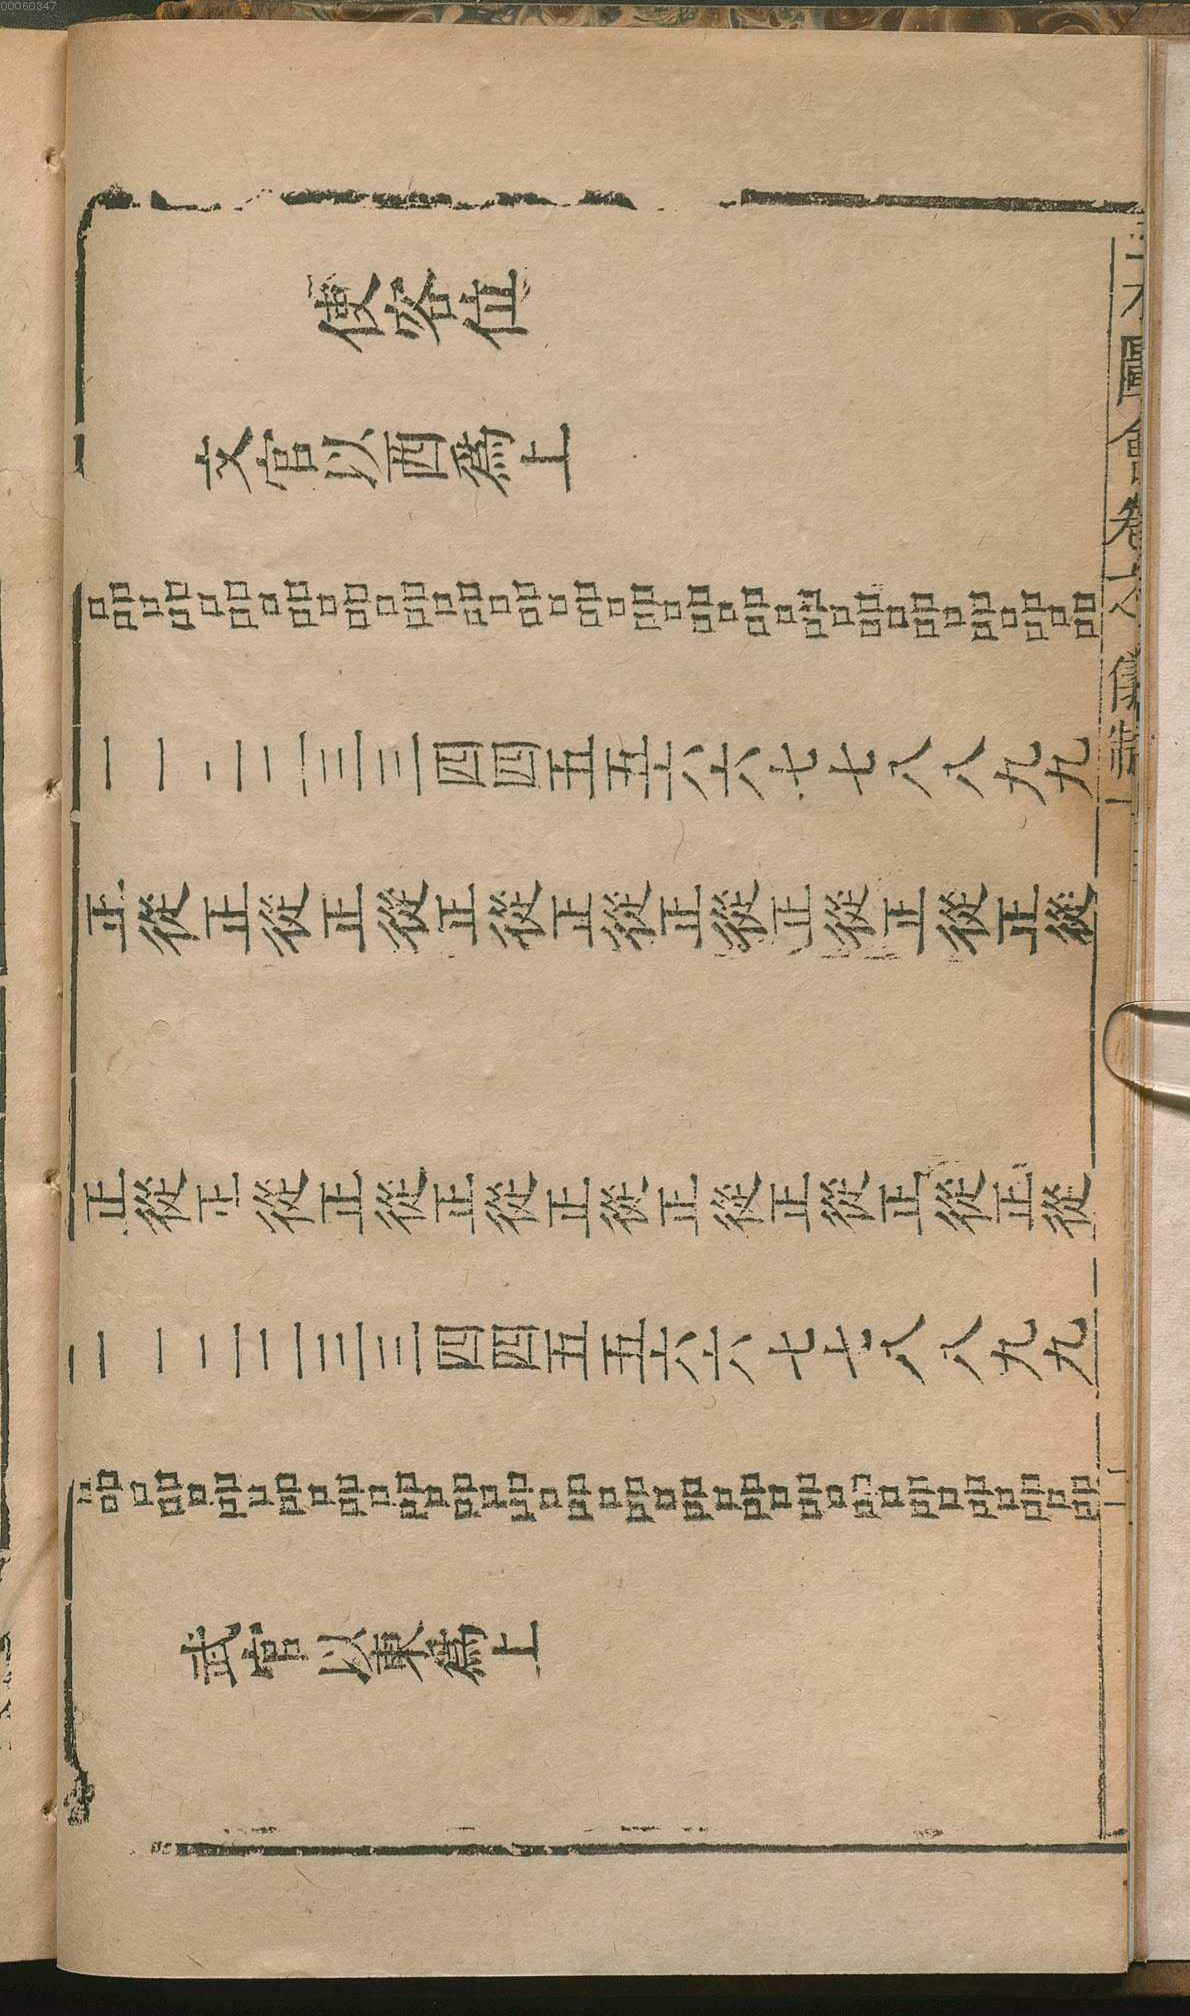 三才圖會 卷之 儀制一
使客位
文官以西爲上
正一品
從一品
正二品
從二品
正三品
從三品
正四品
從四品
正五品
從五品
正六品
從六品
正七品
從七品
正八品
從八品
正九品
從九品
正一品
從一品
正二品
從二品
正三品
從三品
正四品
從四品
正五品
從五品
正六品
從六品
正七品
從七品
正八品
從八品
正九品
從九品
武官以東爲上
00060347